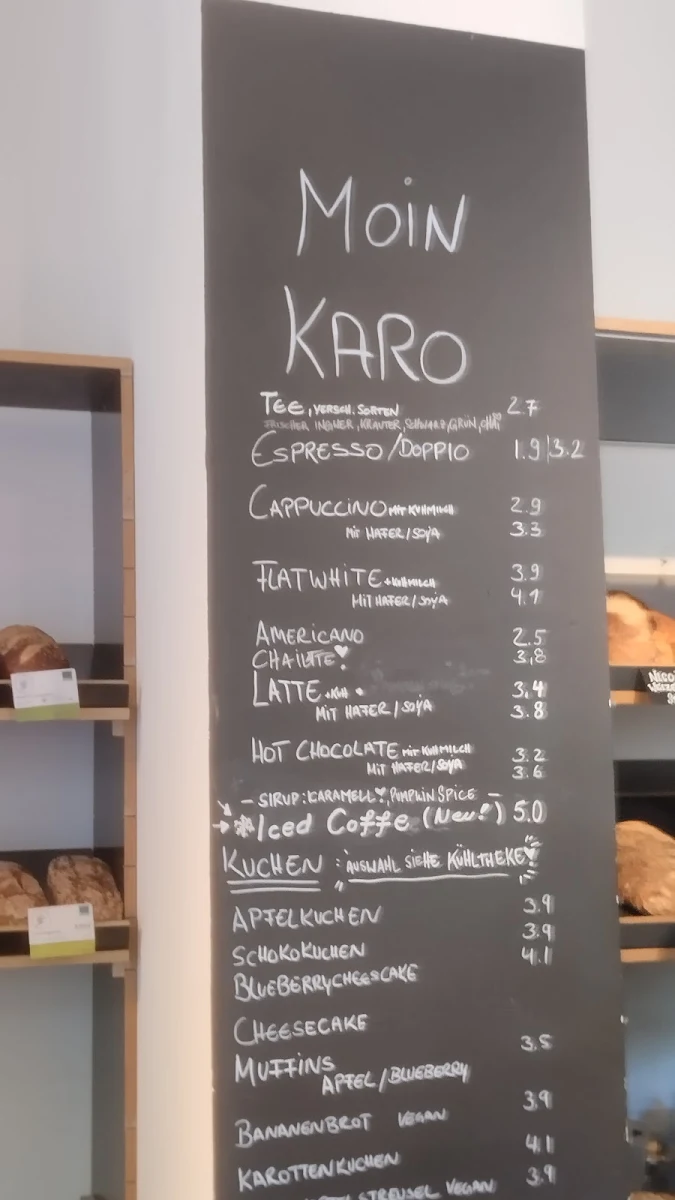 MOIN
KARO
TEE, VERSCH. SORTEN 2.7
FRISCHER INGWER, KRÄUTER, SCHWARZ, GRÜN, CHAI
ESPRESSO/DOPPIO 1.9|3.2
CAPPUCCINO MIT KUHMILCH 2.9
MIT HAFER/SOJA 3.3
FLATWHITE +KUHMILCH 3.9
MIT HAFER/SOJA 4.1
AMERICANO 2.5
CHAILATTE 3,8
LATTE +KUH 3,4
MIT HAFER/SOJA 3.8
HOT CHOCOLATE MIT KUHMILCH 3.2
MIT HAFER/SOJA 3.6
- SIRUP: CARAMELL, PUMPKIN SPICE -
Iced Coffe (Neu!) 5.0
KUCHEN : AUSWAHL SIEHE KÜHLTHEKE
APFELKUCHEN 3.9
SCHOKOKUCHEN 3.9
BLUEBERRYCHEESCAKE 4.1
CHEESECAKE
MUFFINS 3.5
APFEL/BLUEBERRY
BANANENBROT VEGAN 3.9
KAROTTENKUCHEN 4.1
STREUSEL VEGAN 3.9